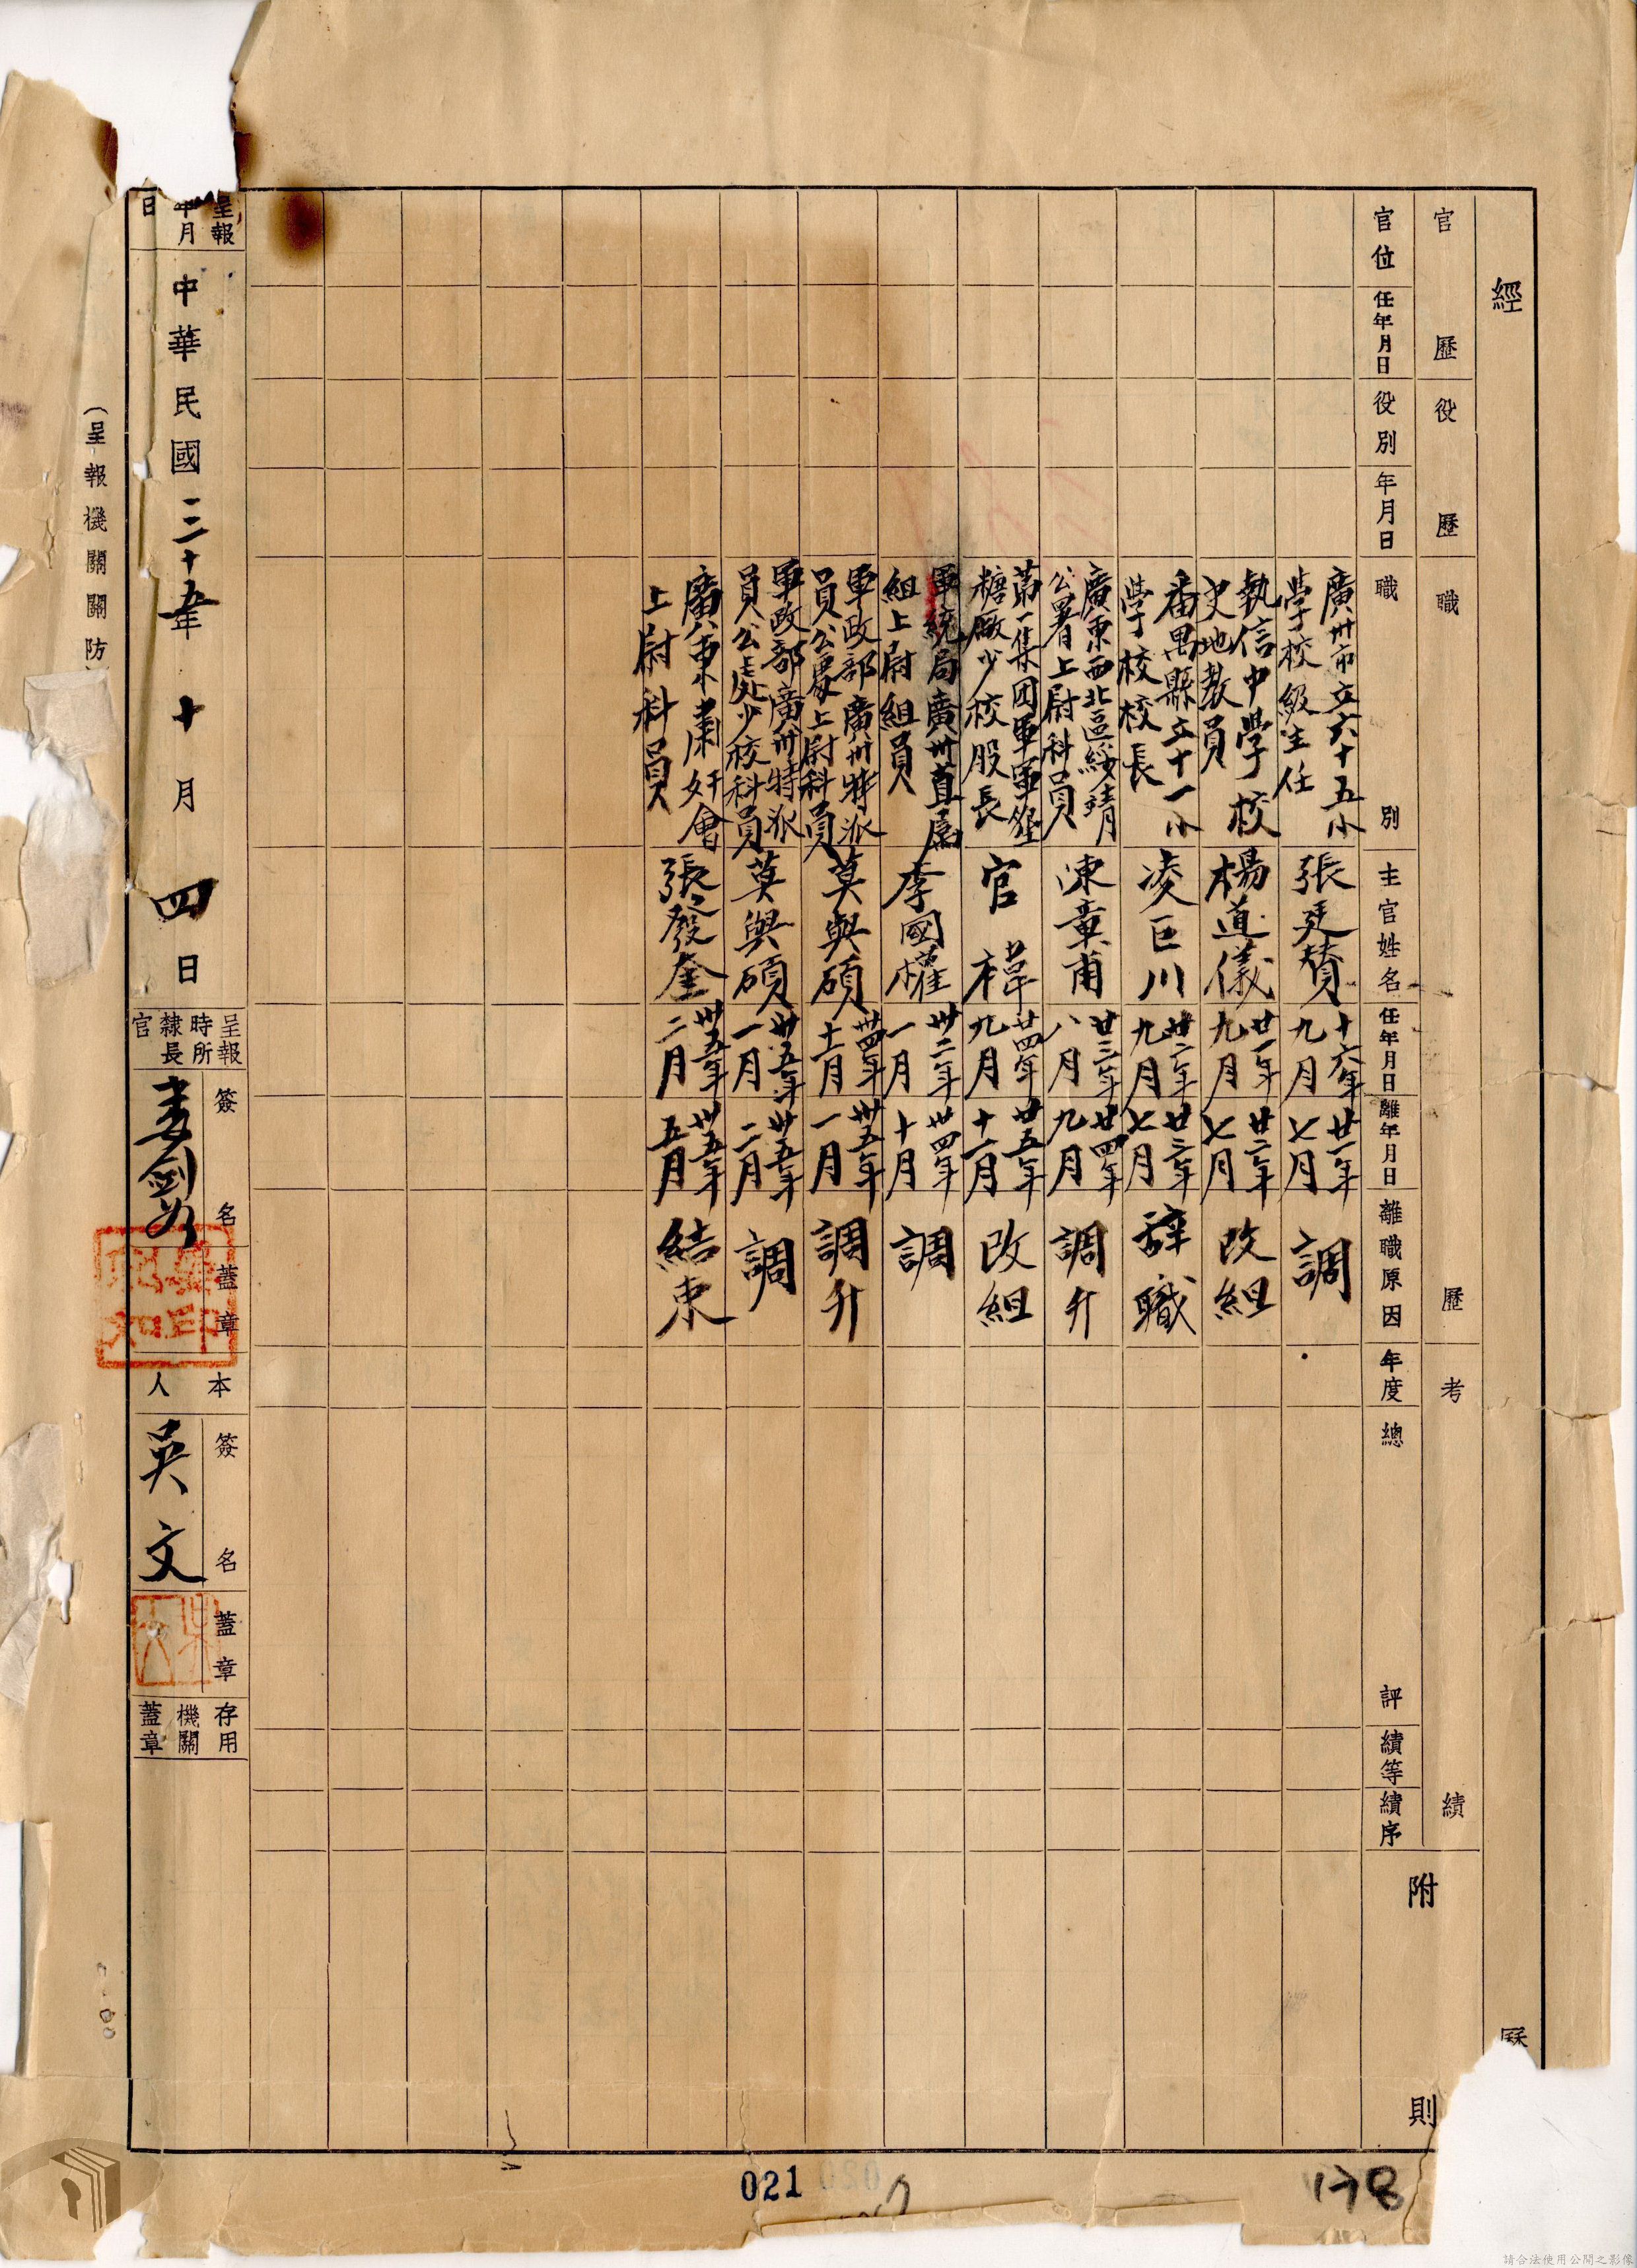 經 歷
官 歷 役 歷 職 歷 考 績
附 則
官位 任年月日 役別 年月日 職 別 主官姓名 任年月日 離年月日 離職原因 年度 總 評 績等 績序
廣州市立六十五小
學校級主任 張廷贊 十六年九月 廿一年七月 調
執信中學校
史地教員 楊道儀 廿一年九月 廿二年七月 改組
番禺縣立十一小
學校校長 凌巨川 廿二年九月 廿三年七月 辞職
廣東西北區綏靖
公署上尉科員 陳章甫 廿三年八月 廿四年九月 調升
第一集团軍軍墾
糖廠少校股長 官禕 廿四年九月 廿五年十一月 改組
軍統局廣州直屬
組上尉組員 李國權 卅二年一月 卅四年十月 調
軍政部廣州特派
員公署上尉科員 莫與碩 卅四年十一月 卅五年一月 調升
軍政部廣州特派
員公處少校科員 莫與碩 卅五年一月 卅五年二月 調
廣東肅奸會
上尉科員 張發奎 卅五年二月 卅五年五月 結束
呈報
年月
日
中華民國三十五年十月四日
呈報
時所
隸長
官
簽名 蓋章
婁劍如
本人
簽名 蓋章
吳文
存用
機關
蓋章
(呈報機關關防
021
178
請合法使用公開之影像